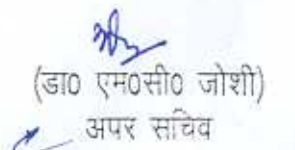 (डा0 एम0सी0 जोशी)
अपर सचिव